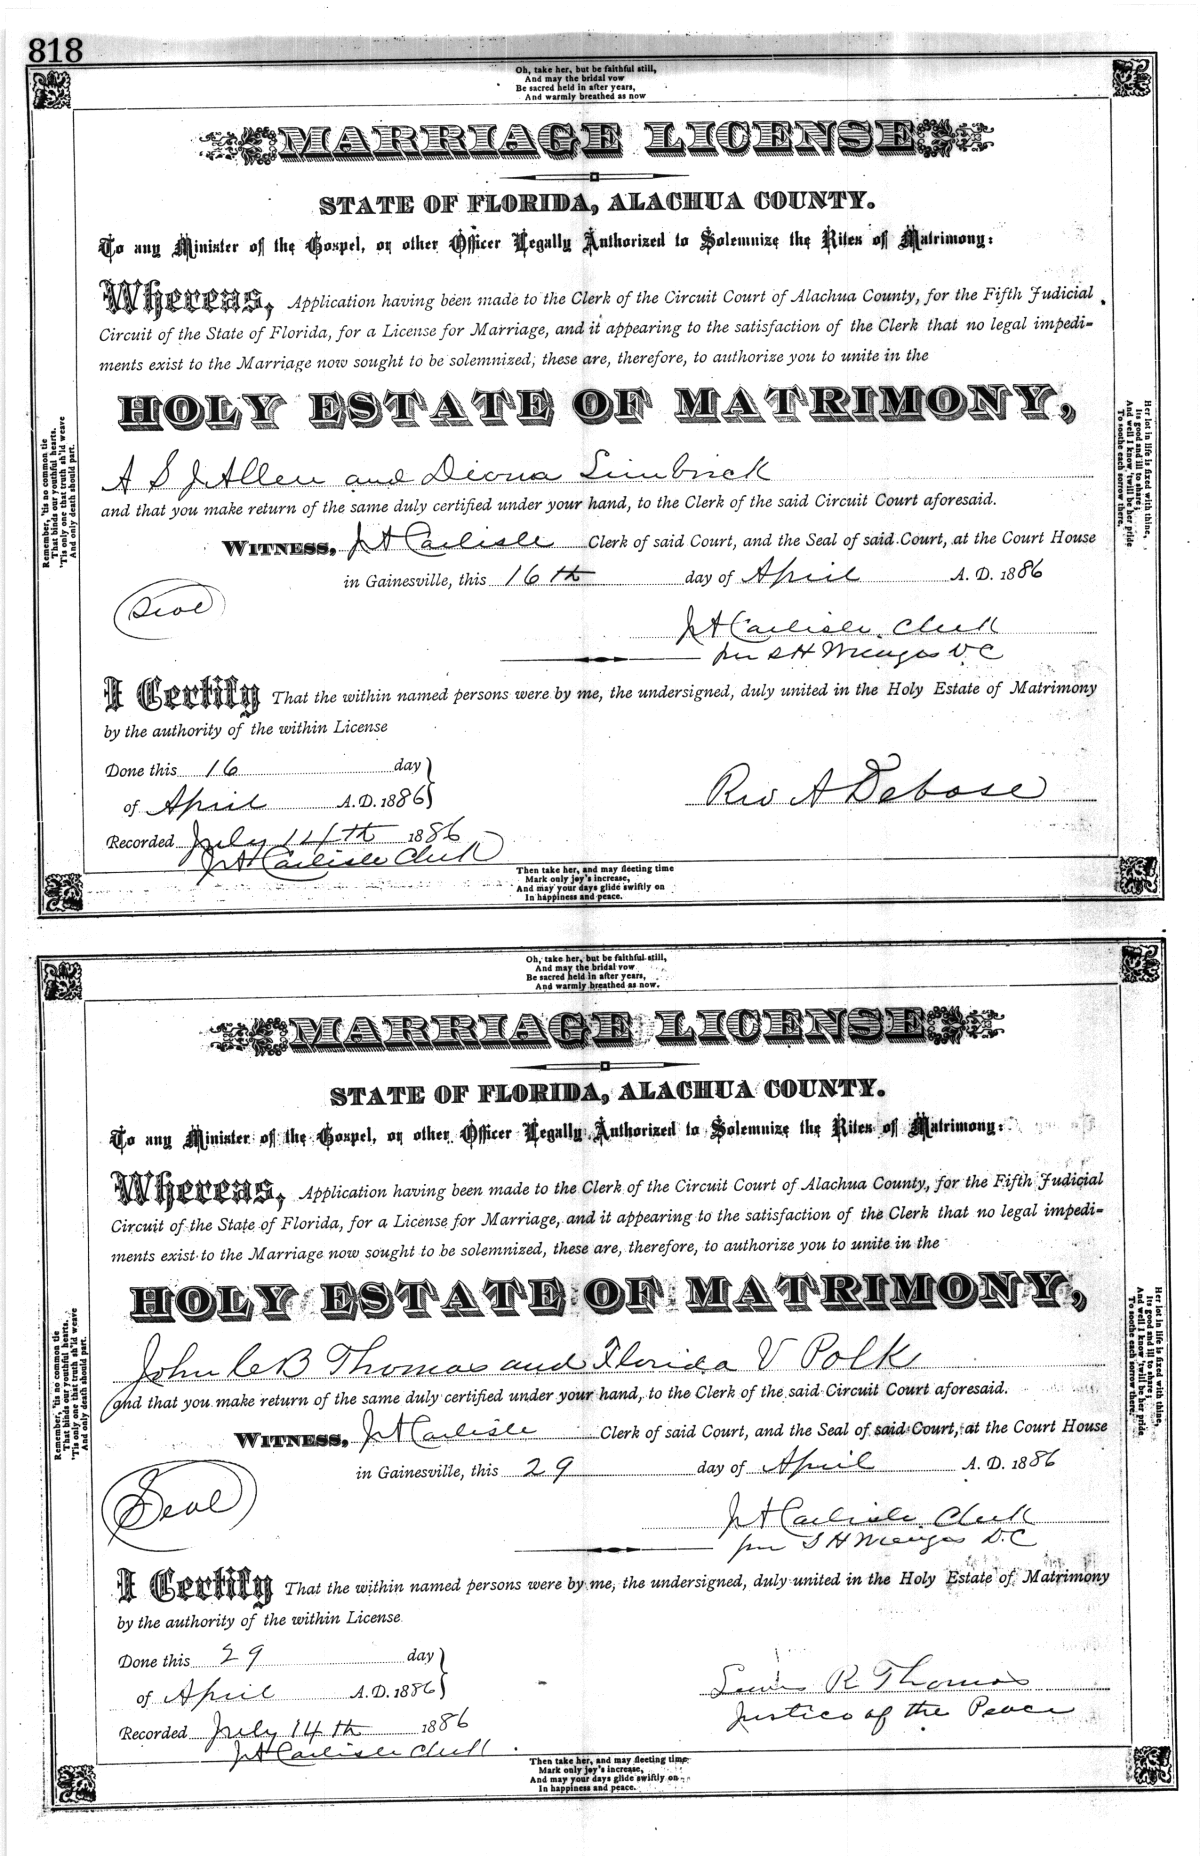 818
Oh, take her, but be faithful still,
And may the bridal vow
Be sacred held in after years,
And warmly breathed as now
MARRIAGE LICENSE
STATE OF FLORIDA, ALACHUA COUNTY.
To any Minister of the Gospel, or other Officer Legally Authorized to Solemnize the Rites of Matrimony:
Whereas, Application having been made to the Clerk of the Circuit Court of Alachua County, for the Fifth Judicial
Circuit of the State of Florida, for a License for Marriage, and it appearing to the satisfaction of the Clerk that no legal impedi-
ments exist to the Marriage now sought to be solemnized; these are, therefore, to authorize you to unite in the
HOLY ESTATE OF MATRIMONY,
A S J Allen and Diona Limbrick
and that you make return of the same duly certified under your hand, to the Clerk of the said Circuit Court aforesaid.
WITNESS, J A Carlisle Clerk of said Court, and the Seal of said Court, at the Court House
in Gainesville, this 16th day of April A. D. 1886
(Seal)
J A Carlisle Clerk
per S H Meigs D.C
I Certify That the within named persons were by me, the undersigned, duly united in the Holy Estate of Matrimony
by the authority of the within License
Done this 16 day
of April A.D. 1886
Rev A Debose
Recorded July 14th 1886
J A Carlisle Clerk
Remember, 'tis no common tie
That binds our youthful hearts.
'Tis only one that truth sh'ld weave
And only death should part.
Her lot in life is fixed with thine,
Its good and ill to share;
And well I know 'twill be her pride
To soothe each sorrow there.
Then take her, and may fleeting time
Mark only joy's increase,
And may your days glide swiftly on
In happiness and peace.
Oh, take her, but be faithful still,
And may the bridal vow
Be sacred held in after years,
And warmly breathed as now.
MARRIAGE LICENSE
STATE OF FLORIDA, ALACHUA COUNTY.
To any Minister of the Gospel, or other Officer Legally Authorized to Solemnize the Rites of Matrimony:
Whereas, Application having been made to the Clerk of the Circuit Court of Alachua County, for the Fifth Judicial
Circuit of the State of Florida, for a License for Marriage, and it appearing to the satisfaction of the Clerk that no legal impedi-
ments exist to the Marriage now sought to be solemnized, these are, therefore, to authorize you to unite in the
HOLY ESTATE OF MATRIMONY,
John C B Thomas and Florida V Polk
and that you make return of the same duly certified under your hand, to the Clerk of the said Circuit Court aforesaid.
WITNESS, J A Carlisle Clerk of said Court, and the Seal of said Court, at the Court House
in Gainesville, this 29 day of April A. D. 1886
(Seal)
J A Carlisle Clerk
per S H Meigs D.C
I Certify That the within named persons were by me, the undersigned, duly united in the Holy Estate of Matrimony
by the authority of the within License
Done this 29 day
of April A.D. 1886
Lewis R Thomas
Justice of the Peace
Recorded July 14th 1886
J A Carlisle Clerk
Remember, 'tis no common tie
That binds our youthful hearts.
'Tis only one that truth sh'ld weave
And only death should part.
Her lot in life is fixed with thine,
Its good and ill to share;
And well I know 'twill be her pride
To soothe each sorrow there.
Then take her, and may fleeting time
Mark only joy's increase,
And may your days glide swiftly on
In happiness and peace.